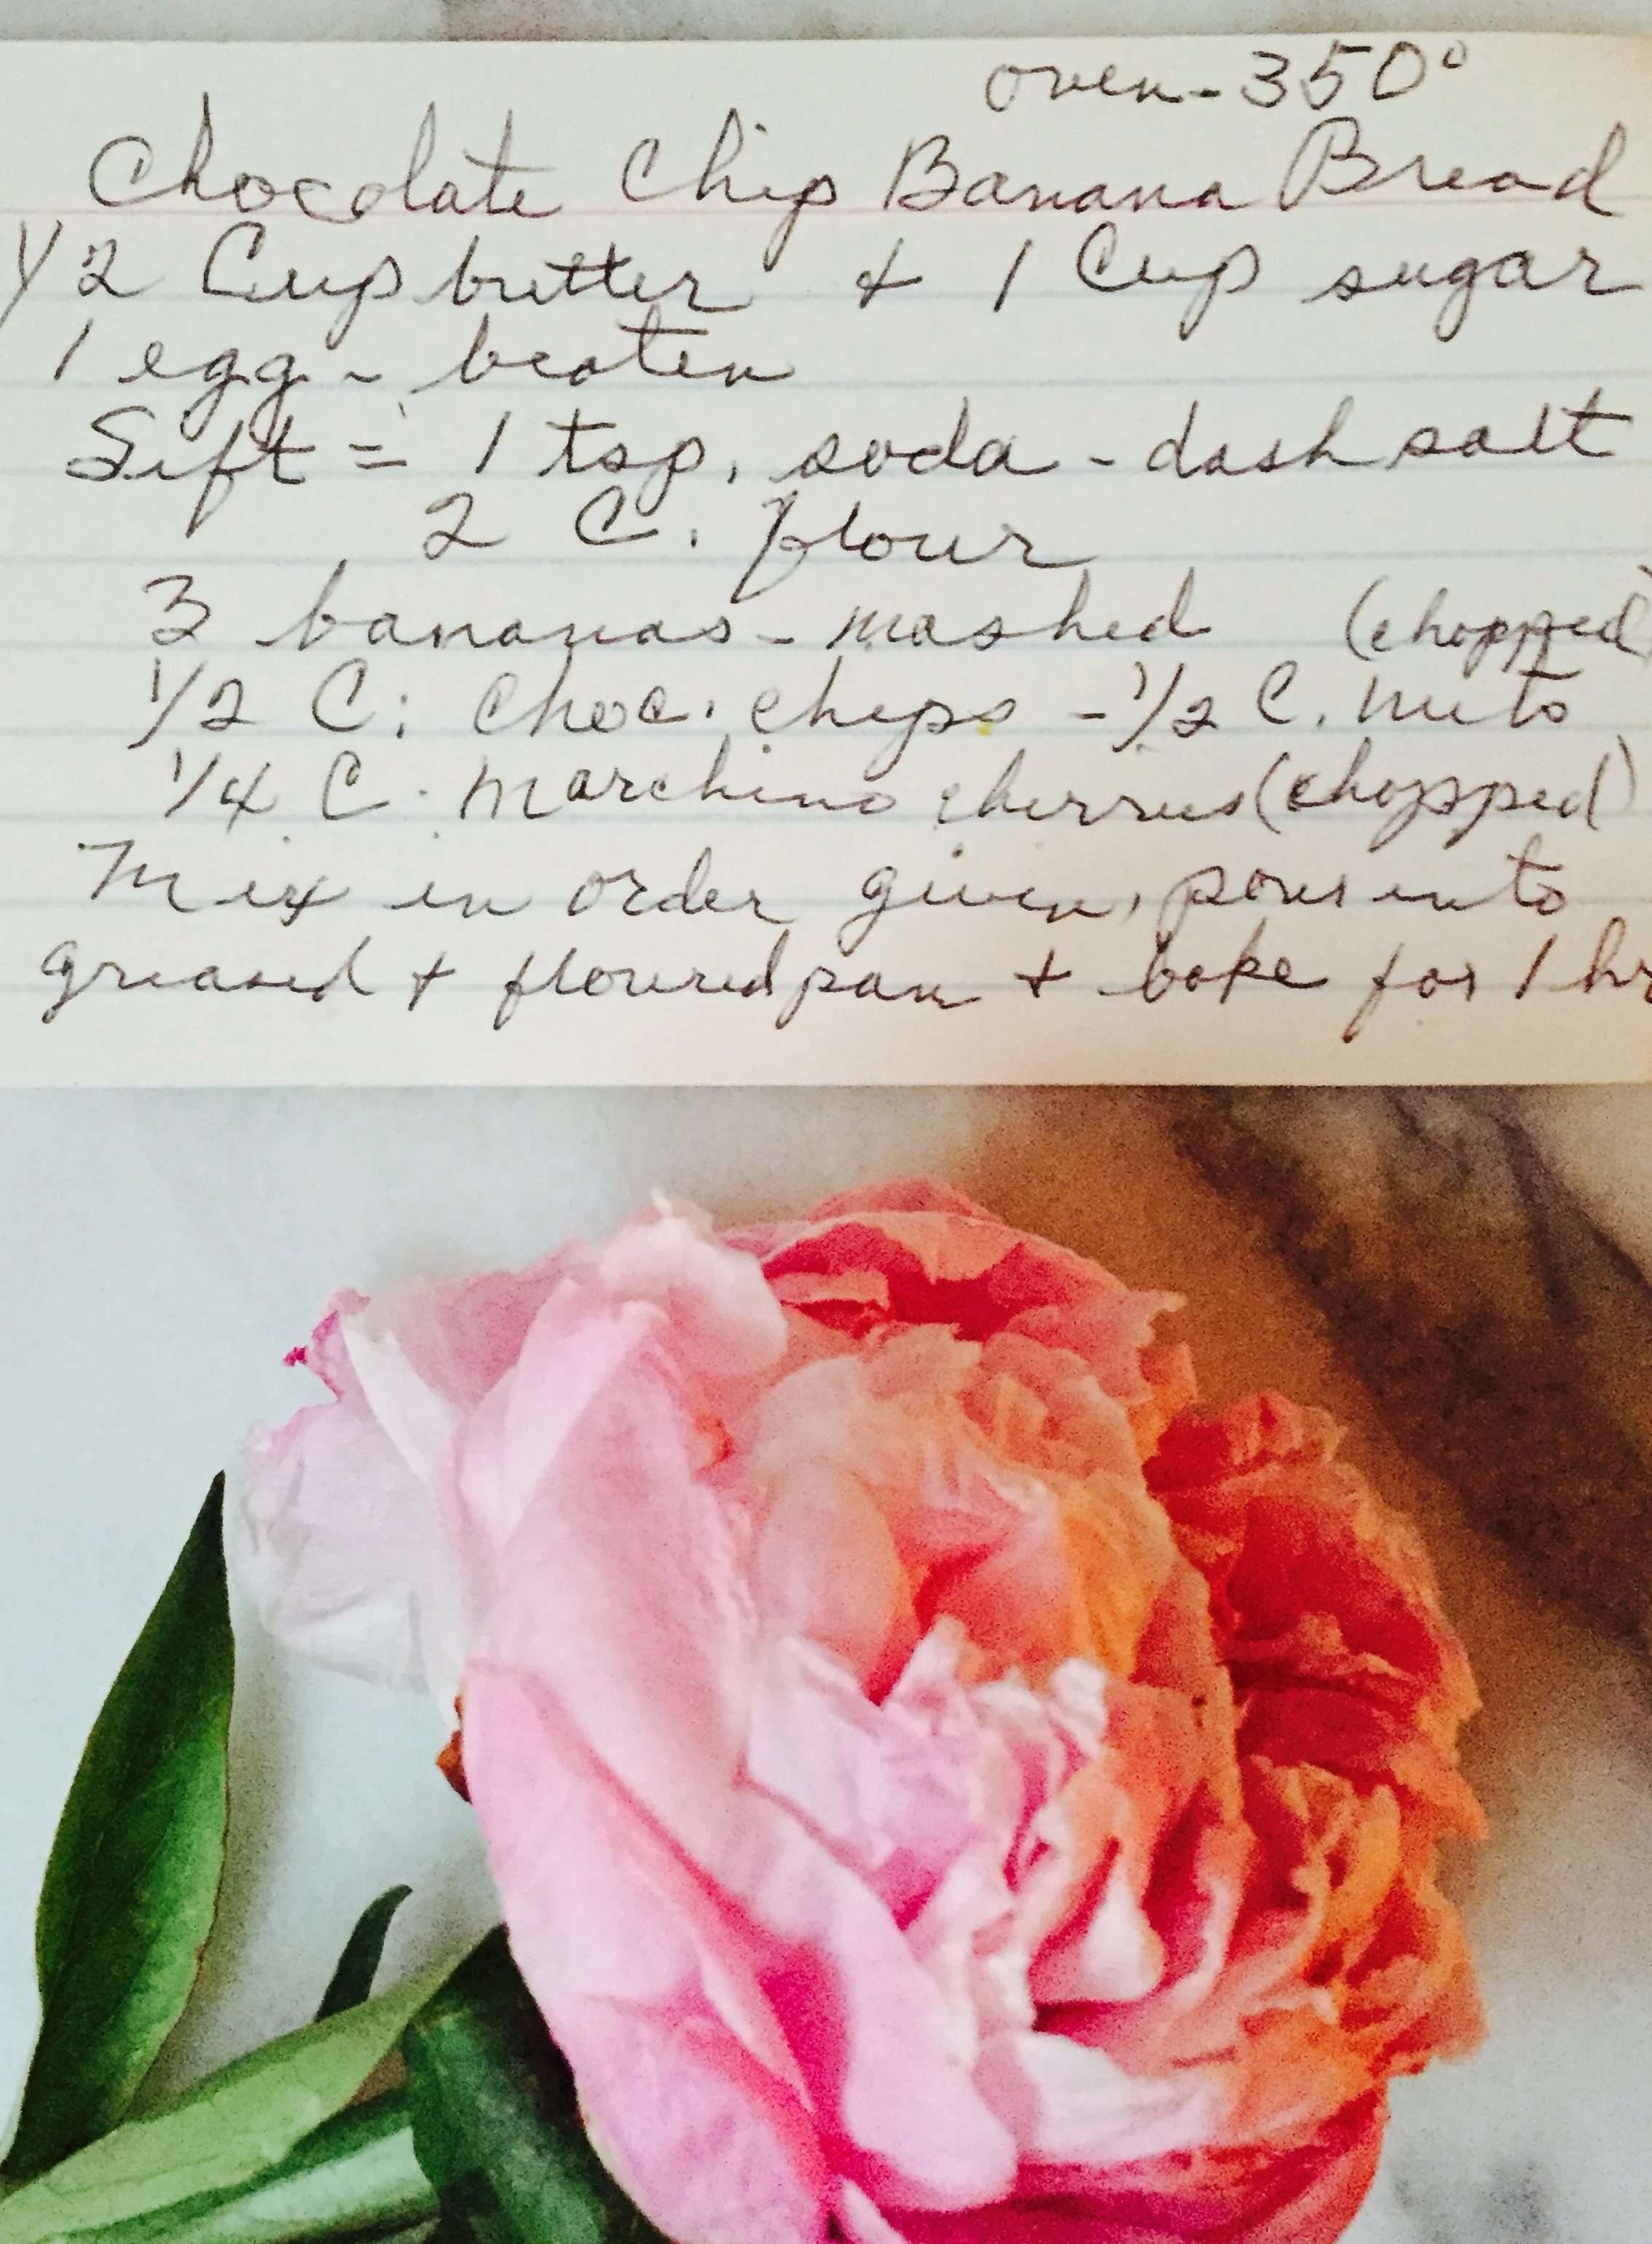 oven - 350°
Chocolate Chip Banana Bread
1/2 Cup butter & 1 Cup sugar
1 egg - beaten
Sift = 1 tsp. soda - dash salt
2 C. flour
3 bananas - mashed (chopped)
1/2 C. choc. chips - 1/2 C. nuts
1/4 C. marchino cherries (chopped)
Mix in order given, pour into
greased + floured pan + bake for 1 hr